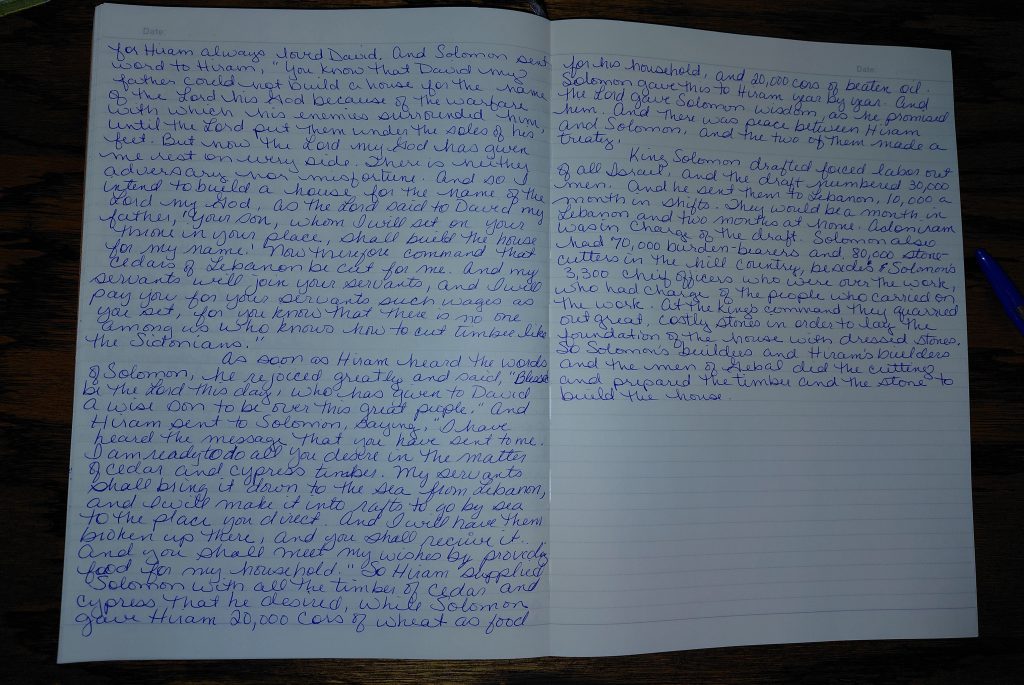 Date:
for Hiram always loved David. And Solomon sent
word to Hiram, "You know that David my
father could not build a house for the name
of the Lord his God because of the warfare
with which his enemies surrounded him,
until the Lord put them under the soles of his
feet. But now the Lord my God has given
me rest on every side. There is neither
adversary nor misfortune. And so I
intend to build a house for the name of the
Lord my God, as the Lord said to David my
father, 'Your son, whom I will set on your
throne in your place, shall build the house
for my name.' Now therefore command that
cedars of Lebanon be cut for me. And my
servants will join your servants, and I will
pay you for your servants such wages as
you set, for you know that there is no one
among us who knows how to cut timber like
the Sidonians."
As soon as Hiram heard the words
of Solomon, he rejoiced greatly and said, "Blesse
be the Lord this day, who has given to David
a wise son to be over this great people." And
Hiram sent to Solomon, saying, "I have
heard the message that you have sent to me.
I am ready to do all you desire in the matter
of cedar and cypress timber. My servants
shall bring it down to the sea from Lebanon,
and I will make it into rafts to go by sea
to the place you direct. And I will have them
broken up there, and you shall receive it.
And you shall meet my wishes by providing
food for my household." So Hiram supplied
Solomon with all the timber of cedar and
cypress that he desired, while Solomon
gave Hiram 20,000 cors of wheat as food
Date:
for his household, and 20,000 cors of beaten oil.
Solomon gave this to Hiram year by year. And
the Lord gave Solomon wisdom, as he promised
him. And there was peace between Hiram
and Solomon, and the two of them made a
treaty.
King Solomon drafted forced labor out
of all Israel, and the draft numbered 30,000
men. And he sent them to Lebanon, 10,000 a
month in shifts. They would be a month in
Lebanon and two months at home. Adoniram
was in charge of the draft. Solomon also
had 70,000 burden-bearers and 80,000 stone-
cutters in the hill country, besides Solomon's
3,300 chief officers who were over the work,
who had charge of the people who carried on
the work. At the King's command they quarried
out great, costly stones in order to lay the
foundation of the house with dressed stones.
So Solomon's builders and Hiram's builders
and the men of Gebal did the cutting
and prepared the timber and the stone to
build the house.